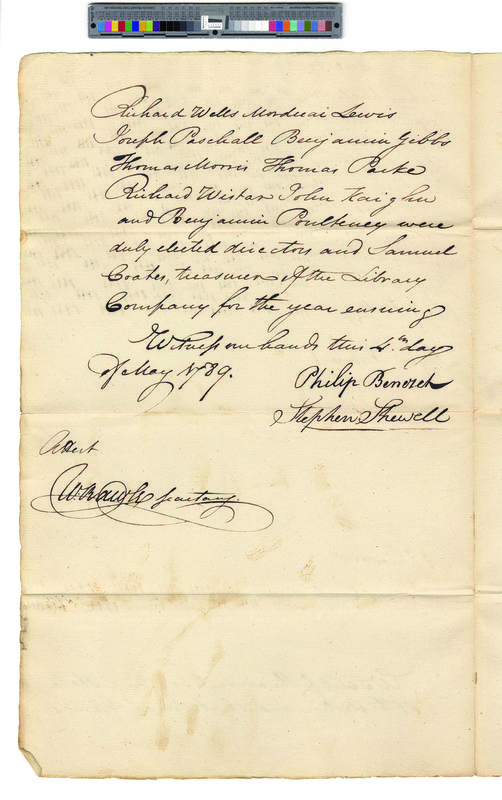 Richard Wells Mordecai Lewis
Joseph Paschall Benjamin Gibbs
Thomas Morris Thomas Parke
Richard Wistar John Kaighn
and Benjamin Poulteney were
duly elected directors and Samuel
Coates, treasurer of the Library
Company for the year ensuing
Witness our hands this 4.th day
of May 1789.
Philip Benezet
Stephen Shewell
Attest
W. Rawle secretary.